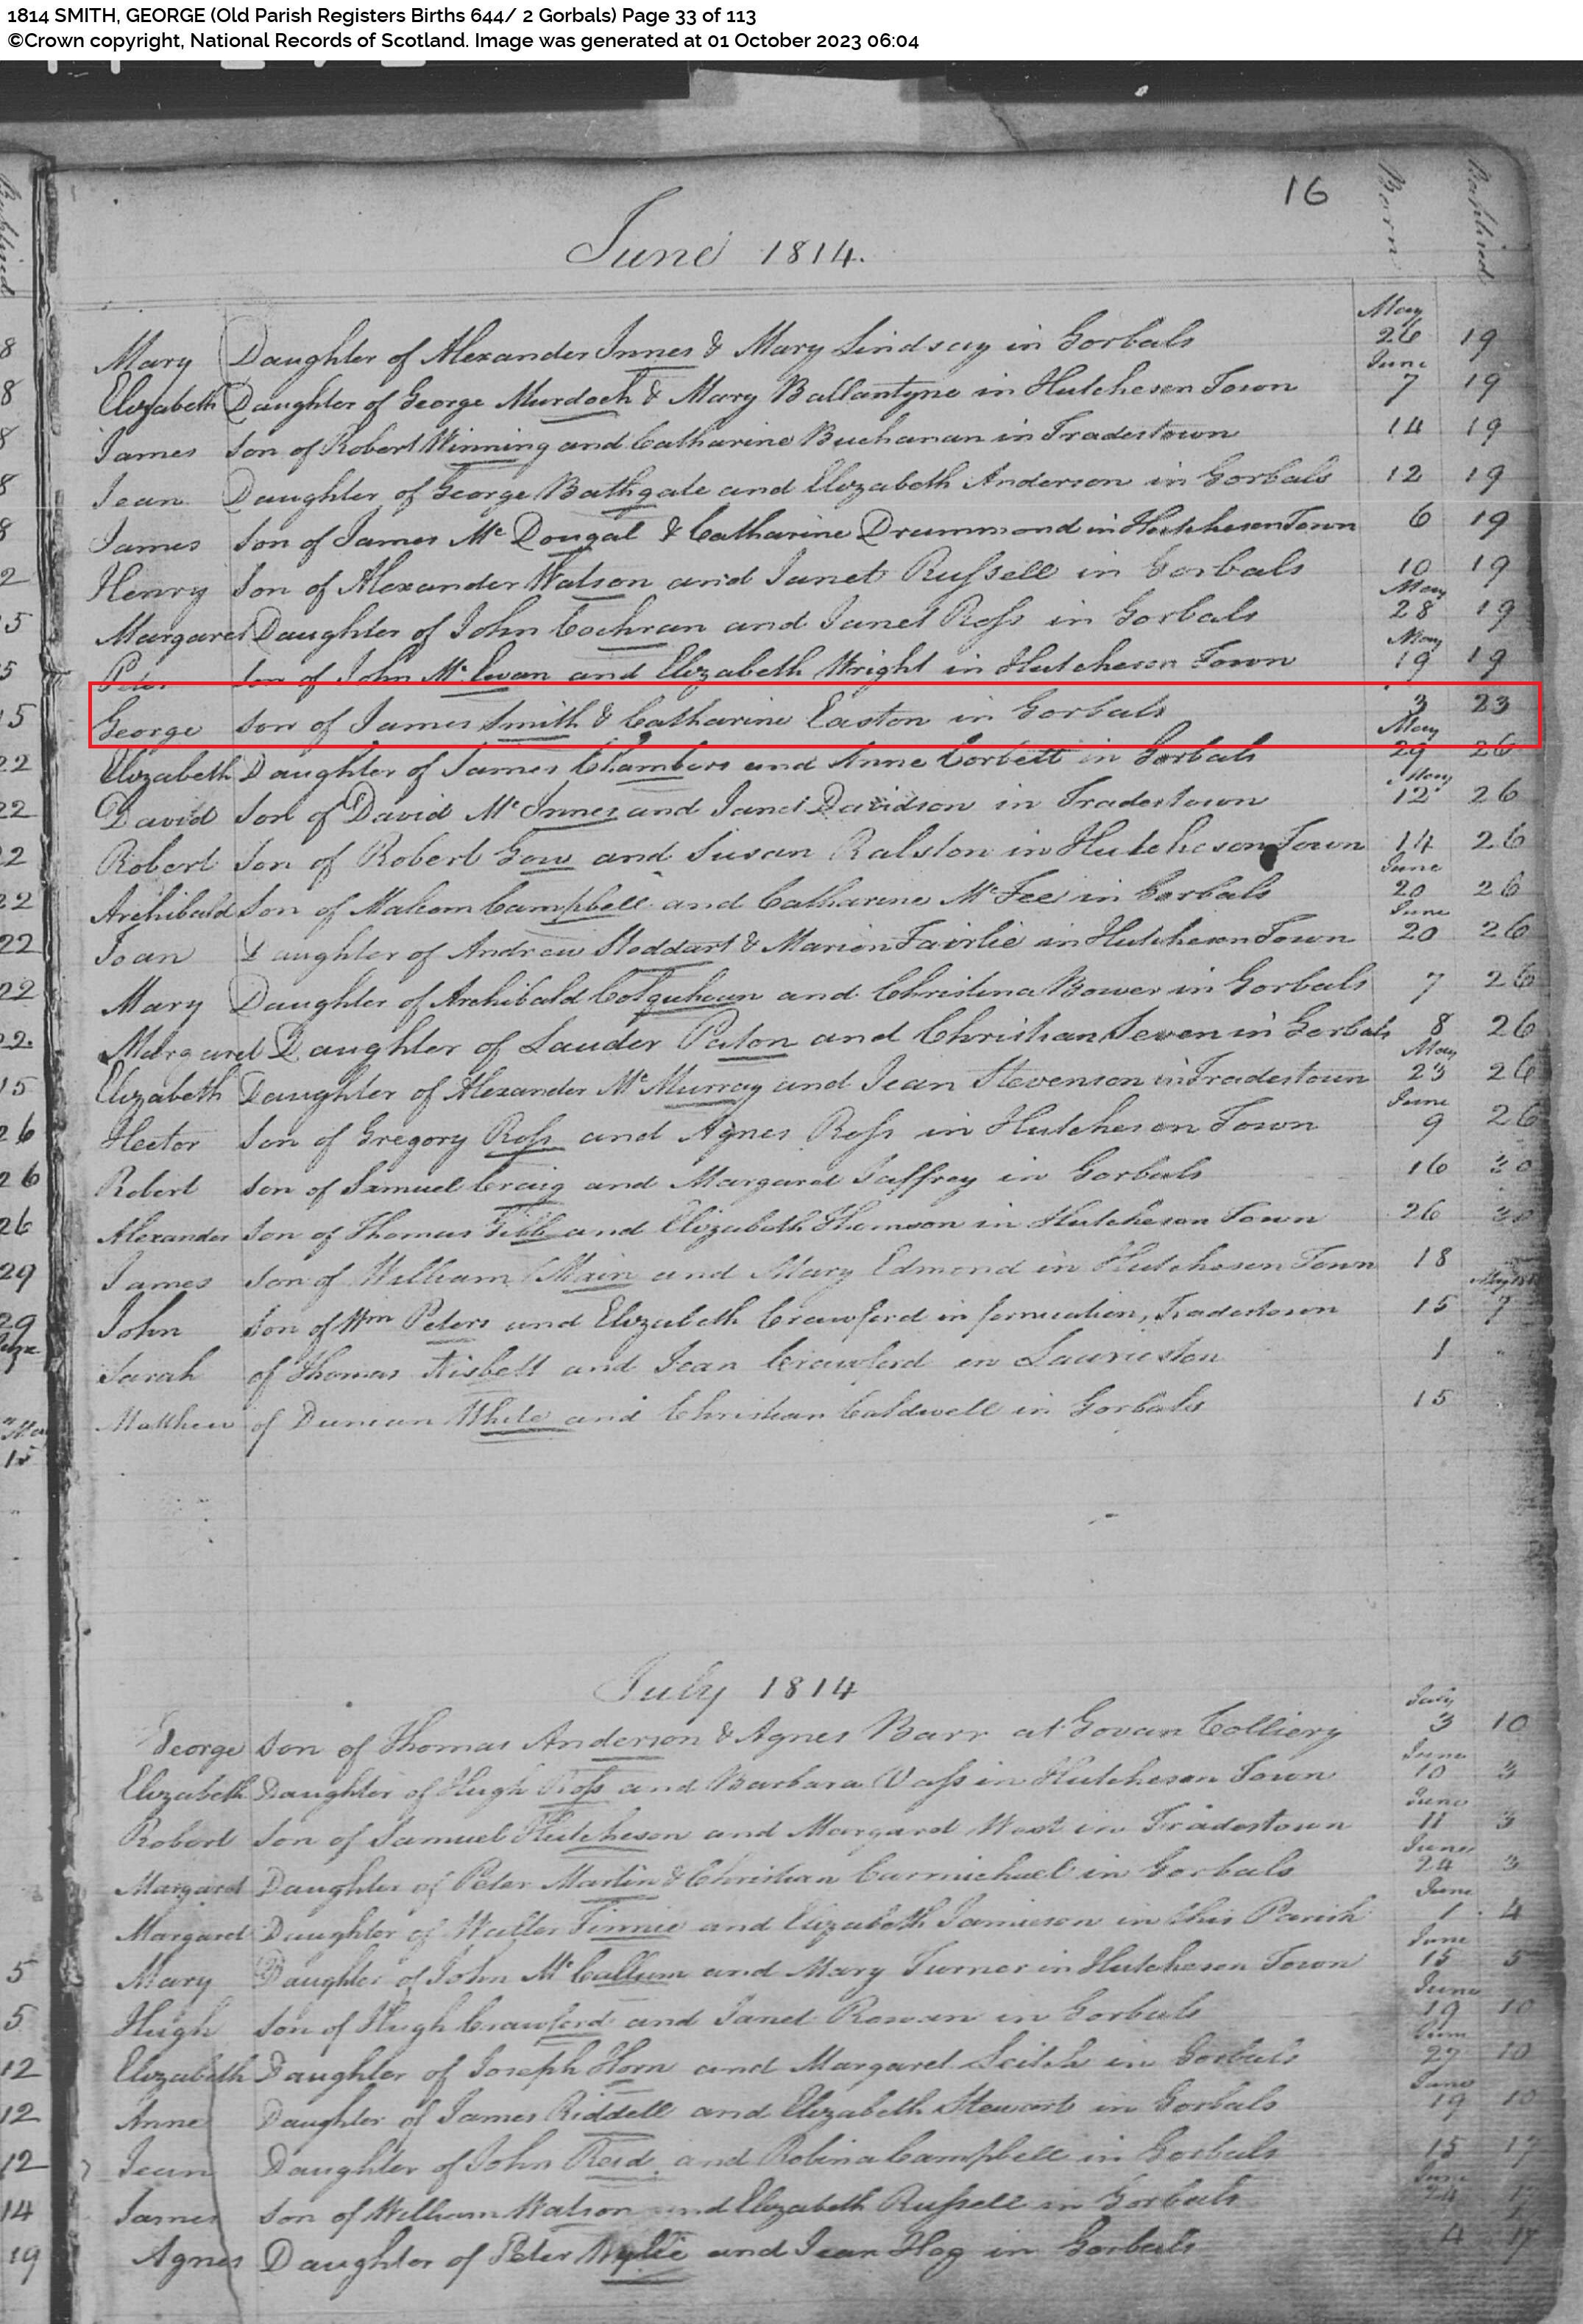 1814 SMITH, GEORGE (Old Parish Registers Births 644/ 2 Gorbals) Page 33 of 113
©Crown copyright, National Records of Scotland. Image was generated at 01 October 2023 06:04
16 Born Baptized
June 1814.
Mary Daughter of Alexander Innes & Mary Lindsay in Gorbals May 26 19
Elizabeth Daughter of George Murdoch & Mary Ballantyne in Hutcheson Town June 7 19
James Son of Robert Winning and Catharine Buchanan in Tradestown 14 19
Jean Daughter of George Bathgate and Elizabeth Anderson in Gorbals 12 19
James Son of James Mc Dougal & Catharine Drummond in Hutcheson Town 6 19
Henry Son of Alexander Watson and Janet Russell in Gorbals 10 19
Margaret Daughter of John Cochran and Janet Ross in Gorbals May 28 19
Peter Son of John Mc Ewan and Elizabeth Wright in Hutcheson Town May 19 19
George Son of James Smith & Catharine Easton in Gorbals 3 23
Elizabeth Daughter of James Chambers and Anne Corbett in Gorbals May 29 26
David Son of David Mc Innes and Janet Davidson in Tradestown May 12 26
Robert Son of Robert Gow and Susan Ralston in Hutcheson Town 14 26
Archibald Son of Malcom Campbell and Catharine Mc Fee in Gorbals June 20 26
Joan Daughter of Andrew Stoddart & Marion Fairlie in Hutcheson Town June 20 26
Mary Daughter of Archibald Colquhoun and Christina Bower in Gorbals 7 26
Margaret Daughter of Lauder Paton and Christian in Gorbals 8 26
Elizabeth Daughter of Alexander Mc Murray and Jean Stevenson in Tradestown May 23 26
Hector Son of Gregory Ross and Agnes Ross in Hutcheson Town June 9 26
Robert Son of Samuel Craig and Margaret Jaffrey in Gorbals 16 30
Alexander Son of Thomas Gibb and Elizabeth Thomson in Hutcheson Town 26 30
James Son of William Main and Mary Edmond in Hutcheson Town 18
John Son of Wm Peters and Elizabeth Crawford in fornication, Tradestown 15 7
Sarah of Thomas Nisbett and Jean Crawford in Laurieston 1
Matthew of Duncan White and Christian Caldwell in Gorbals 15
July 1814
George Son of Thomas Anderson & Agnes Barr at Govan Colliery July 3 10
Elizabeth Daughter of Hugh Ross and Barbara Vass in Hutcheson Town June 10 3
Robert Son of Samuel Hutcheson and Margaret West in Tradestown June 11 3
Margaret Daughter of Peter Martin & Christian Carmichael in Gorbals June 24 3
Margaret Daughter of Walter Finnie and Elizabeth Jamieson in this Parish June 1 4
Mary Daughter of John Mc Callum and Mary Turner in Hutcheson Town June 15 5
Hugh Son of Hugh Crawford and Janet Rowan in Gorbals June 19 10
Elizabeth Daughter of Joseph Horn and Margaret Leitch in Gorbals June 27 10
Anne Daughter of James Riddell and Elizabeth Stewart in Gorbals June 19 10
Jean Daughter of John Reid and Robina Campbell in Gorbals 15 17
James Son of William Watson and Elizabeth Russell in Gorbals June 24 17
Agnes Daughter of Peter Wylie and Jean Hog in Gorbals 4 17